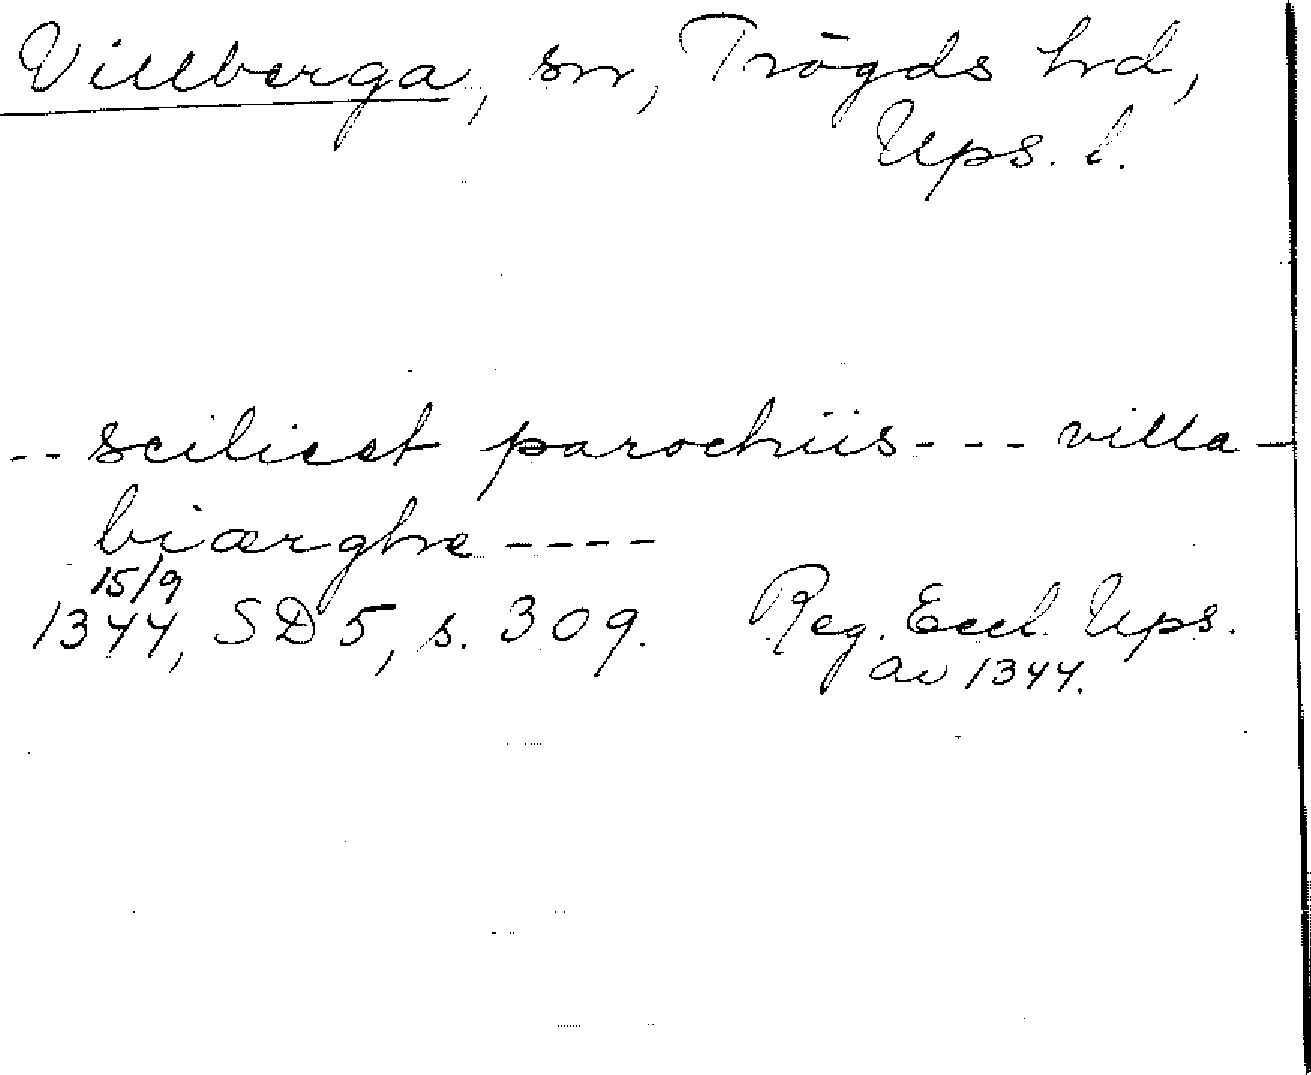 Villberga, sn, Trögds hd,
Ups. l.
-- scilicet parochiis --- villa-
biærghe ----
15/9
1344, SD 5, s. 309. Reg. Eccl. Ups.
av 1344.